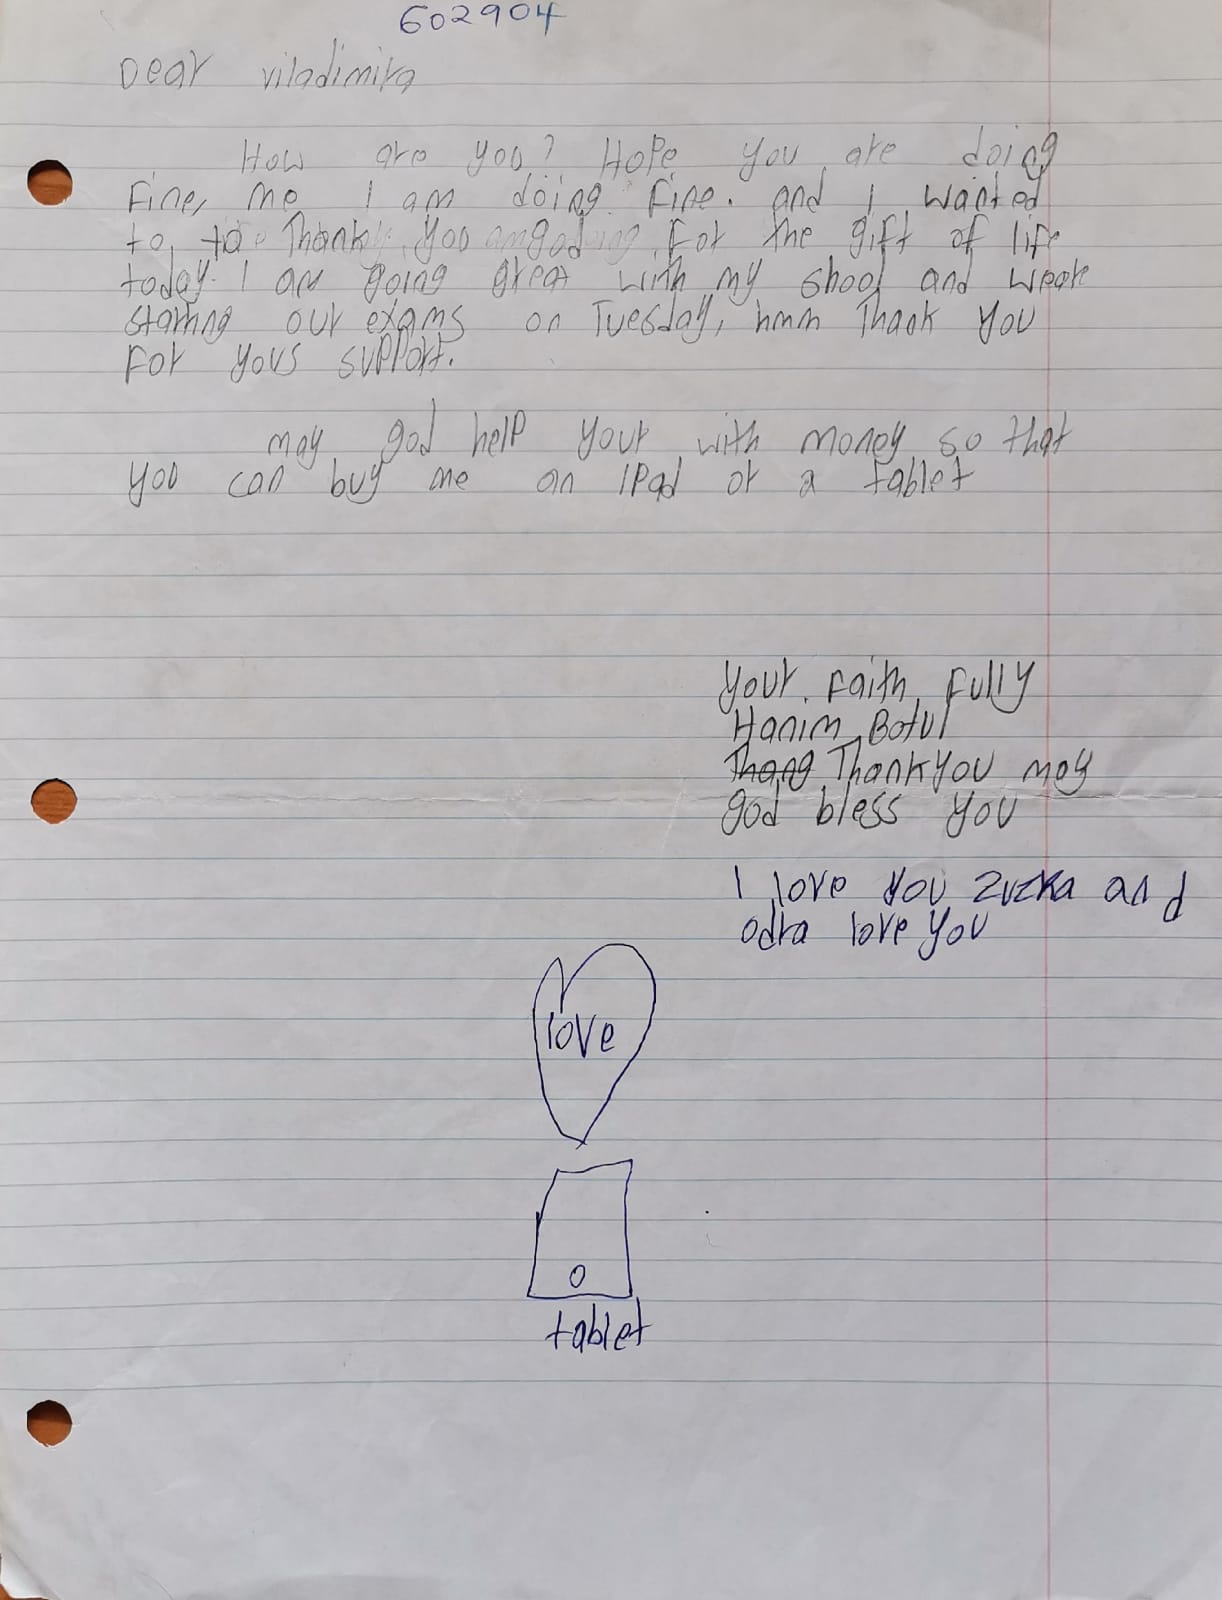 602904
Dear viladimira
How are you? Hope you are doing
Fine, me I am doing fine. and I wanted
to to Thank you for the gift of life
today. I am going great with my shool and weare
starting our exams on Tuesday, hmm Thank you
For yous support.
may god help your with money so that
you can buy me an IPad or a tablet
Your Faith Fully
Hanim Botul
Thang Thankyou may
god bless you
I love you Zuzka and
odra love you
love
tablet